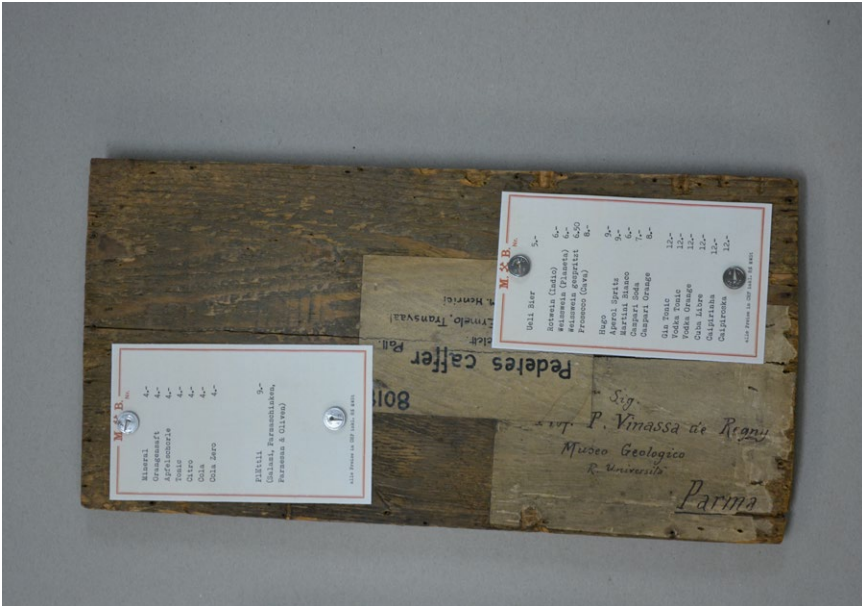 M. & B.
No.
Mineral 4.-
Orangensaft 4.-
Apfelschorle 4.-
Tonic 4.-
Citro 4.-
Cola 4.-
Cola Zero 4.-
Plättli 9.-
(Salami, Parmaschinken,
Parmesan & Oliven)
alle Preise in CHF inkl. 8% MWSt
M. & B.
No.
Ueli Bier 5.-
Rotwein (Indio) 6.-
Weisswein (Planeta) 6.-
Weisswein gespritzt 6.50
Prosecco (Cava) 8.-
Hugo 9.-
Aperol Spritz 9.-
Martini Bianco 6.-
Campari Soda 7.-
Campari Orange 8.-
Gin Tonic 12.-
Vodka Tonic 12.-
Vodka Orange 12.-
Cuba Libre 12.-
Caipirinha 12.-
Caipiroska 12.-
alle Preise in CHF inkl. 8% MWSt
8018
Pedetes caffer
Pall.
Skelett
Ermelo, Transvaal
Henrici
Sig.
P. Vinassa de Regny
Museo Geologico
R. Università
Parma